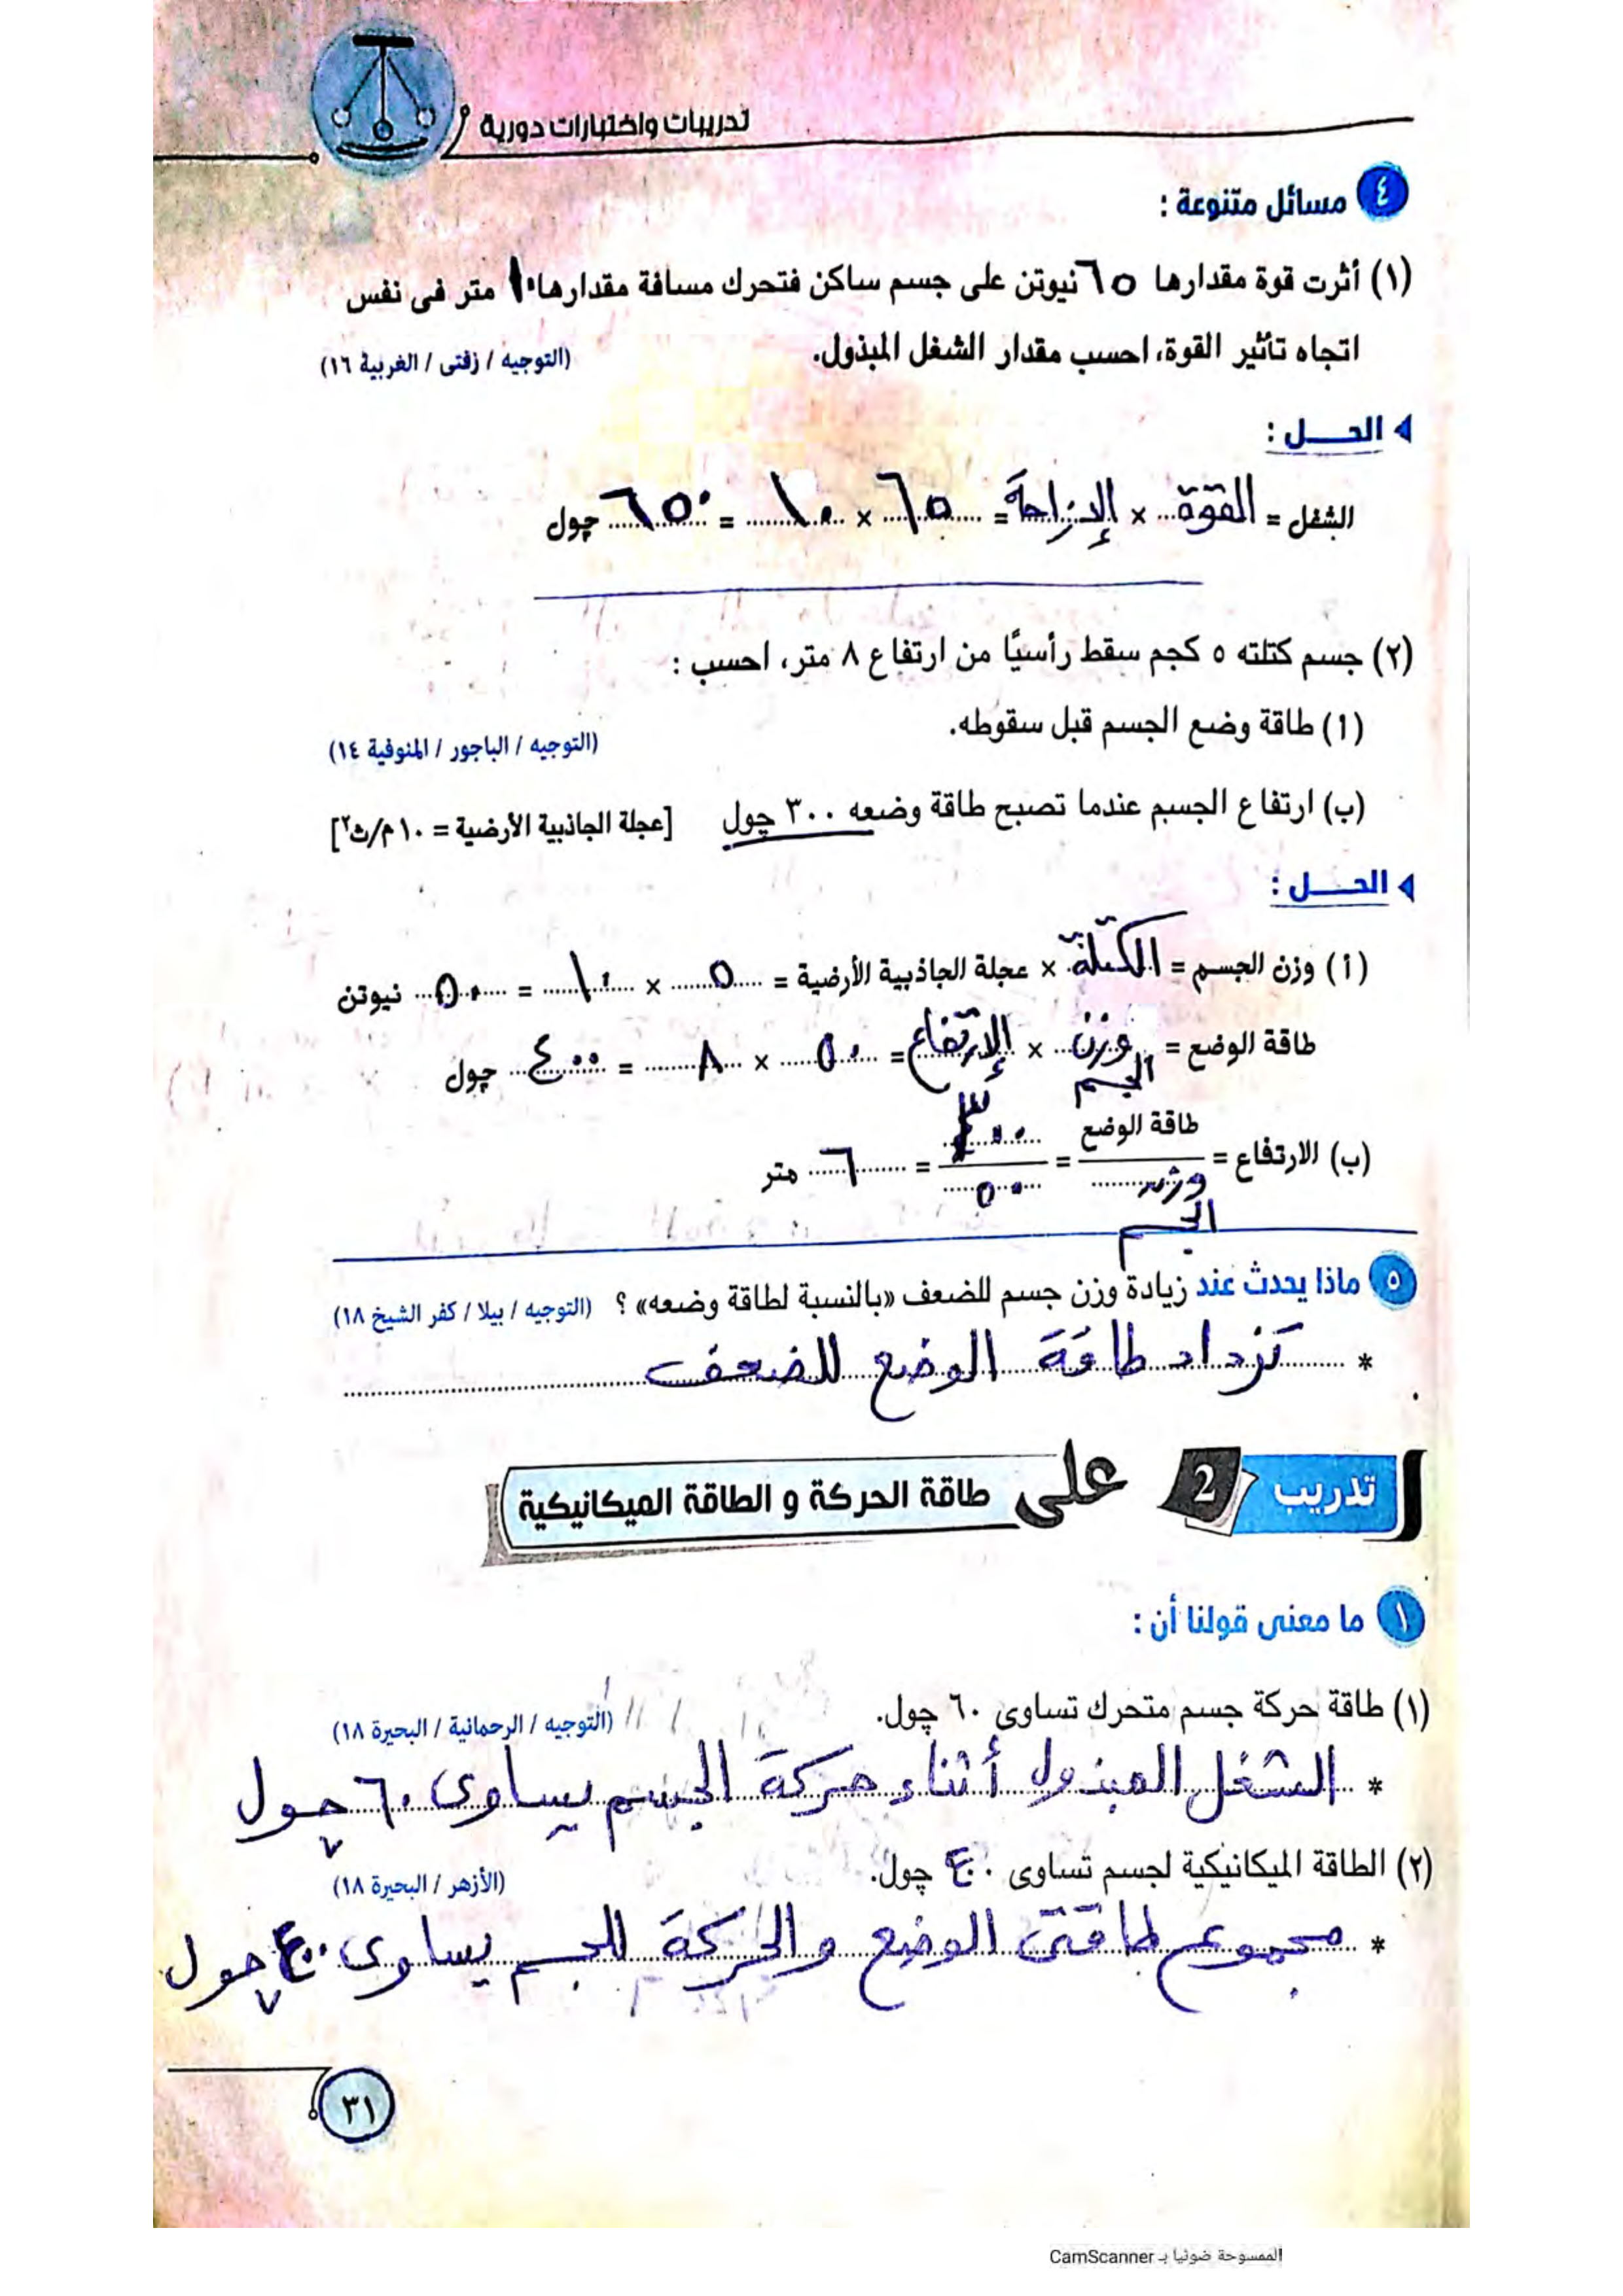 تدريبات واختبارات دورية
٤ مسائل متنوعة :
(١) أثرت قوة مقدارها ٦٥ نيوتن على جسم ساكن فتحرك مسافة مقدارها ١٠ متر فى نفس
اتجاه تأثير القوة، احسب مقدار الشغل المبذول. (التوجيه / زفتى / الغربية ١٦)
الحـــل :
الشغل = القوة × الإزاحة = ٦٥ × ١٠ = ٦٥٠ چول
(٢) جسم كتلته ٥ كجم سقط رأسيًا من ارتفاع ٨ متر، احسب :
(أ) طاقة وضع الجسم قبل سقوطه. (التوجيه / الباجور / المنوفية ١٤)
(ب) ارتفاع الجسم عندما تصبح طاقة وضعه ٣٠٠ چول [عجلة الجاذبية الأرضية = ١٠ م/ث٢]
الحـــل :
(أ) وزن الجسم = الكتلة × عجلة الجاذبية الأرضية = ٥ × ١٠ = ٥٠ نيوتن
طاقة الوضع = وزن الجسم × الإرتفاع = ٥٠ × ٨ = ٤٠٠ چول
(ب) الارتفاع = طاقة الوضع / وزن الجسم = ٣٠٠ / ٥٠ = ٦ متر
٥ ماذا يحدث عند زيادة وزن جسم للضعف «بالنسبة لطاقة وضعه» ؟ (التوجيه / بيلا / كفر الشيخ ١٨)
* تزداد طاقة الوضع للضعف
تدريب 2 على طاقة الحركة و الطاقة الميكانيكية
١ ما معنى قولنا أن :
(١) طاقة حركة جسم متحرك تساوى ٦٠ چول. (التوجيه / الرحمانية / البحيرة ١٨)
* الشغل المبذول أثناء حركة الجسم يساوى ٦٠ چول
(٢) الطاقة الميكانيكية لجسم تساوى ٤٠٠ چول. (الأزهر / البحيرة ١٨)
* مجموع طاقتى الوضع والحركة للجسم يساوى ٤٠٠ چول
٣١
الممسوحة ضوئيا بـ CamScanner